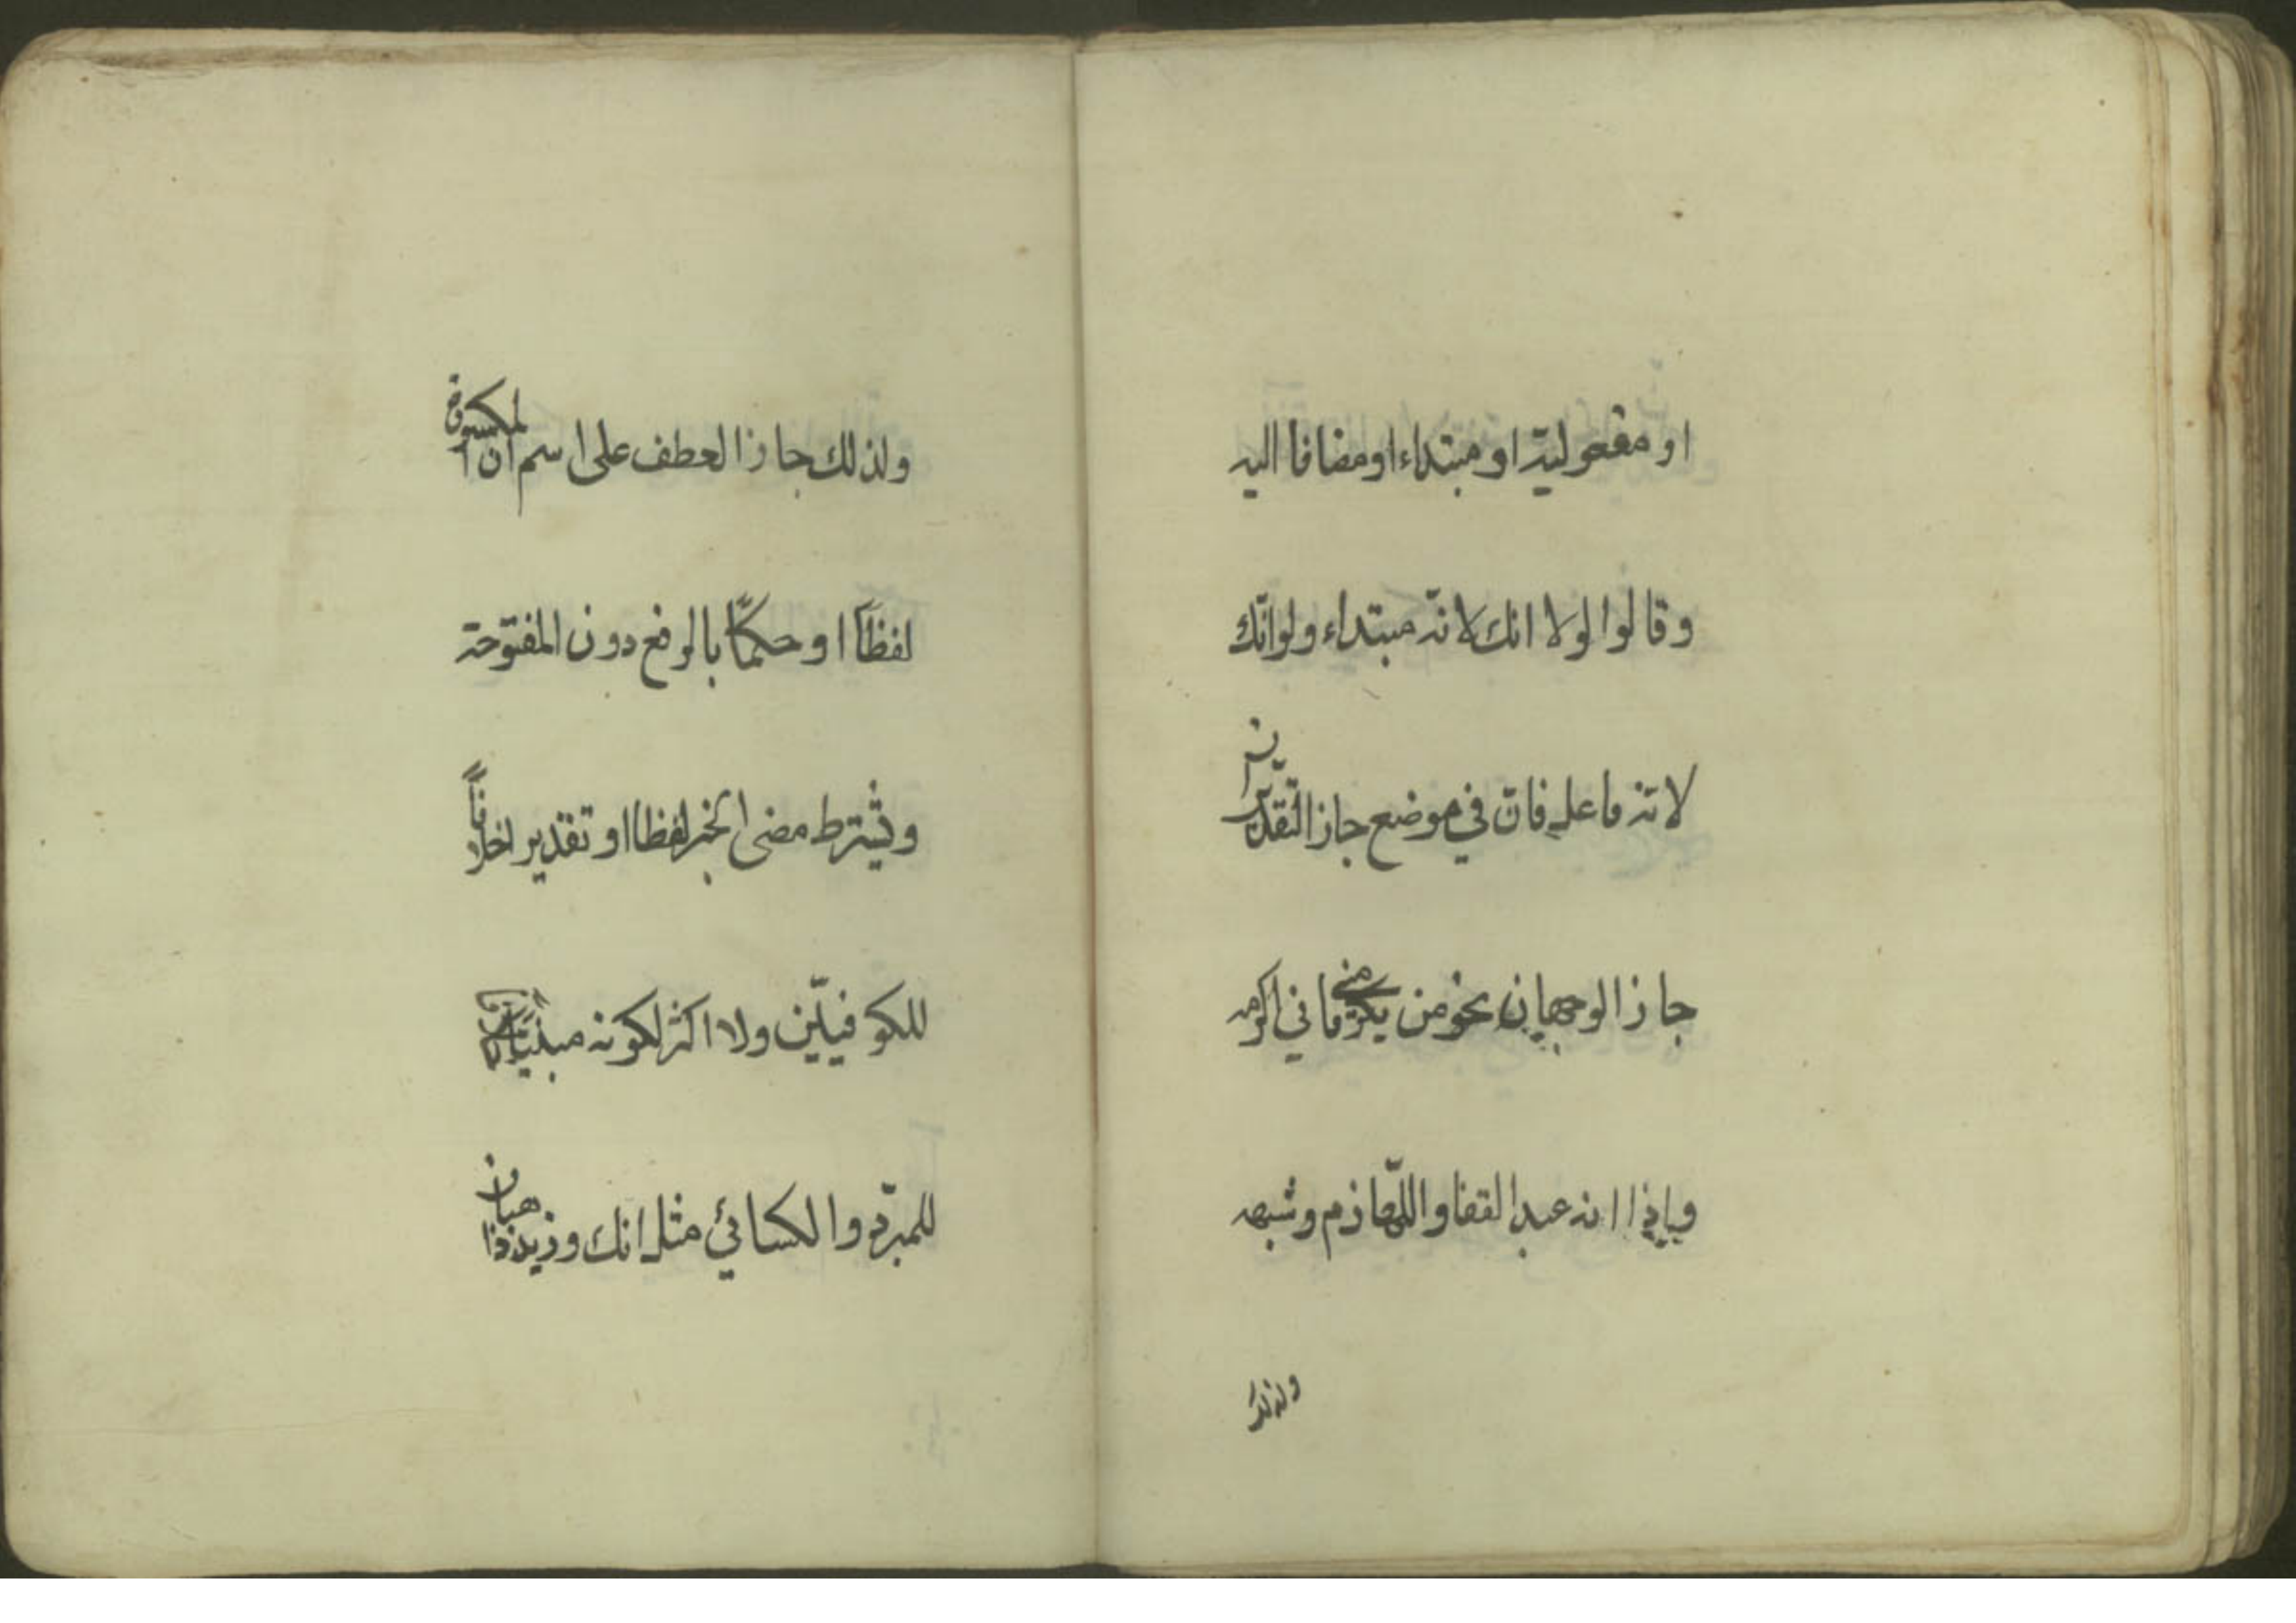 او مفعولية او مبتداء او مضافا اليه
وقالوا لولا انك لانه مبتداء ولو انّك
لانه فاعل فان في موضع جاز التقديران
جاز الوجهان نحو من يكرمني فاني اكرمه
وباذا انه عبد القفا واللّهازم وشبهه
ولذلك
ولذلك جاز العطف على اسم ان المكسورة
لفظًا او حكمًا بالرفع دون المفتوحة
ويشترط مضى الخبر لفظا او تقدير اخلافًا
للكوفيّين ولا اكثر لكونه مبنيًا
للمبرّد والكسائي مثل انك وزيد ذاهبان